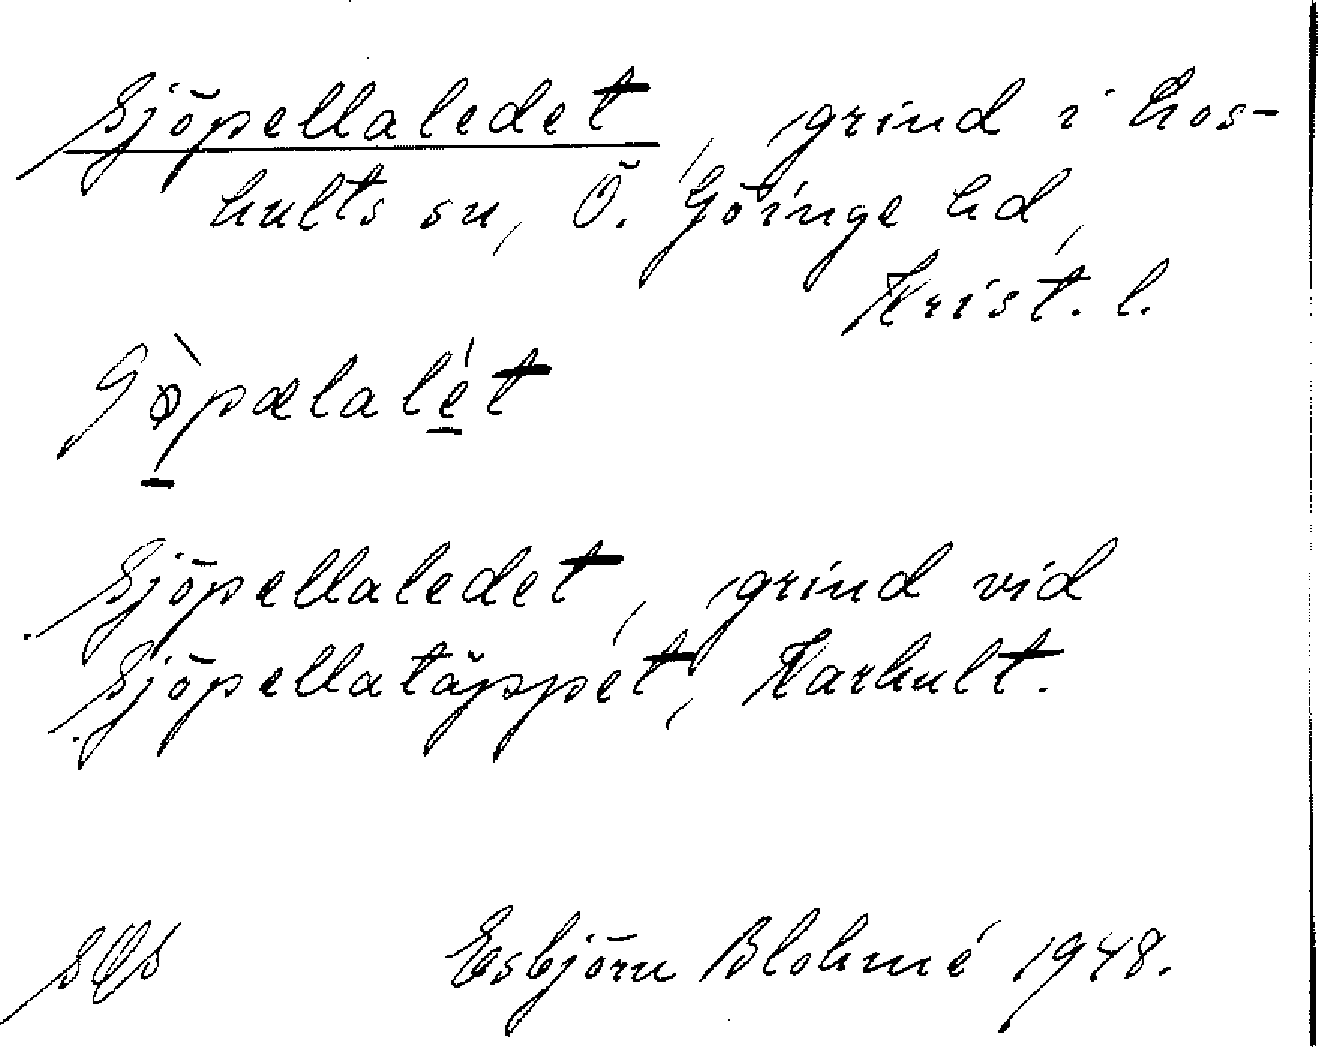 Sjöpellaledet, grind i Los-
hults sn, Ö. Göinge hd,
Krist. l.
Sjöpellaledet, grind vid
Sjöpellatäppet, Karhult.
Esbjörn Blohmé 1948.